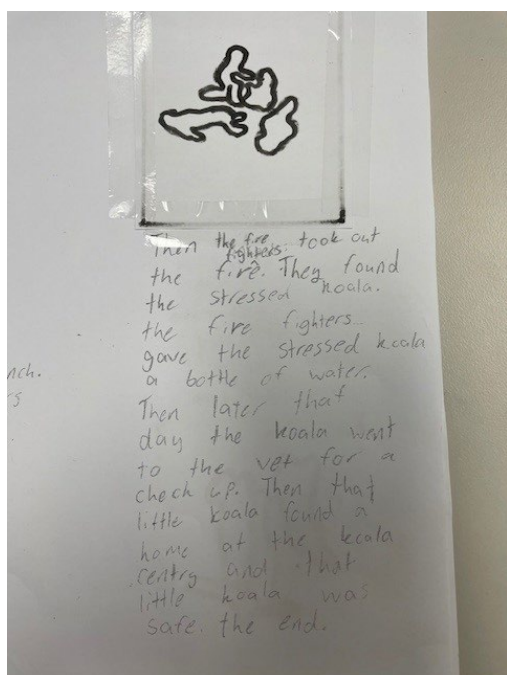 Then the fire
fighters. took out
the fire. They found
the stressed koala.
the fire fighters...
gave the stressed koala
a bottle of water.
Then later that
day the koala went
to the vet for a
check up. Then that
little koala found a
home at the koala
centry and that
little koala was
safe. the end.
nch.
rs